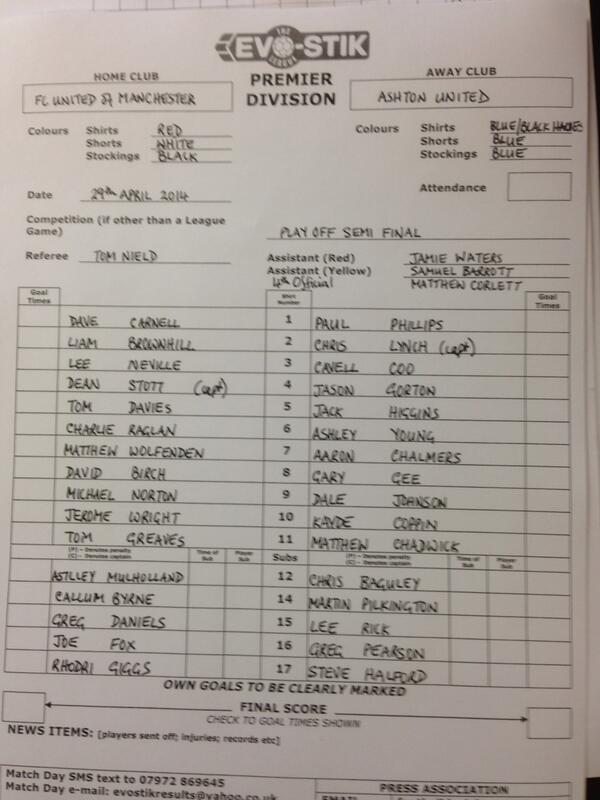 THE
EVO-STIK
LEAGUE
HOME CLUB PREMIER DIVISION AWAY CLUB
FC UNITED OF MANCHESTER ASHTON UNITED
Colours Shirts RED Colours Shirts BLUE/BLACK HACHES
Shorts WHITE Shorts BLUE
Stockings BLACK Stockings BLUE
Date 29th APRIL 2014 Attendance
Competition (if other than a League Game) PLAY OFF SEMI FINAL
Referee TOM NIELD Assistant (Red) JAMIE WATERS
Assistant (Yellow) SAMUEL BARROTT
4th Official MATTHEW CORLETT
Goal Times Shirt Number Goal Times
DAVE CARNELL 1 PAUL PHILLIPS
LIAM BROWNHILL 2 CHRIS LYNCH (capt)
LEE NEVILLE 3 CAVELL COO
DEAN STOTT (capt) 4 JASON GORTON
TOM DAVIES 5 JACK HIGGINS
CHARLIE RAGLAN 6 ASHLEY YOUNG
MATTHEW WOLFENDEN 7 AARON CHALMERS
DAVID BIRCH 8 GARY GEE
MICHAEL NORTON 9 DALE JOHNSON
JEROME WRIGHT 10 KAYDE COPPIN
TOM GREAVES 11 MATTHEW CHADWICK
(P) - Denotes penalty (C) - Denotes captain Time of Sub Player Sub Subs (P) - Denotes penalty (C) - Denotes captain Time of Sub Player Sub
ASTLLEY MULHOLLAND 12 CHRIS BAGULEY
CALLUM BYRNE 14 MARTIN PILKINGTON
GREG DANIELS 15 LEE RICK
JOE FOX 16 GREG PEARSON
RHODRI GIGGS 17 STEVE HALFORD
OWN GOALS TO BE CLEARLY MARKED
FINAL SCORE
CHECK TO GOAL TIMES SHOWN
NEWS ITEMS: [players sent off; injuries; records etc]
Match Day SMS text to 07972 869645 PRESS ASSOCIATION
Match Day e-mail: evostikresults@yahoo.co.uk EMAIL